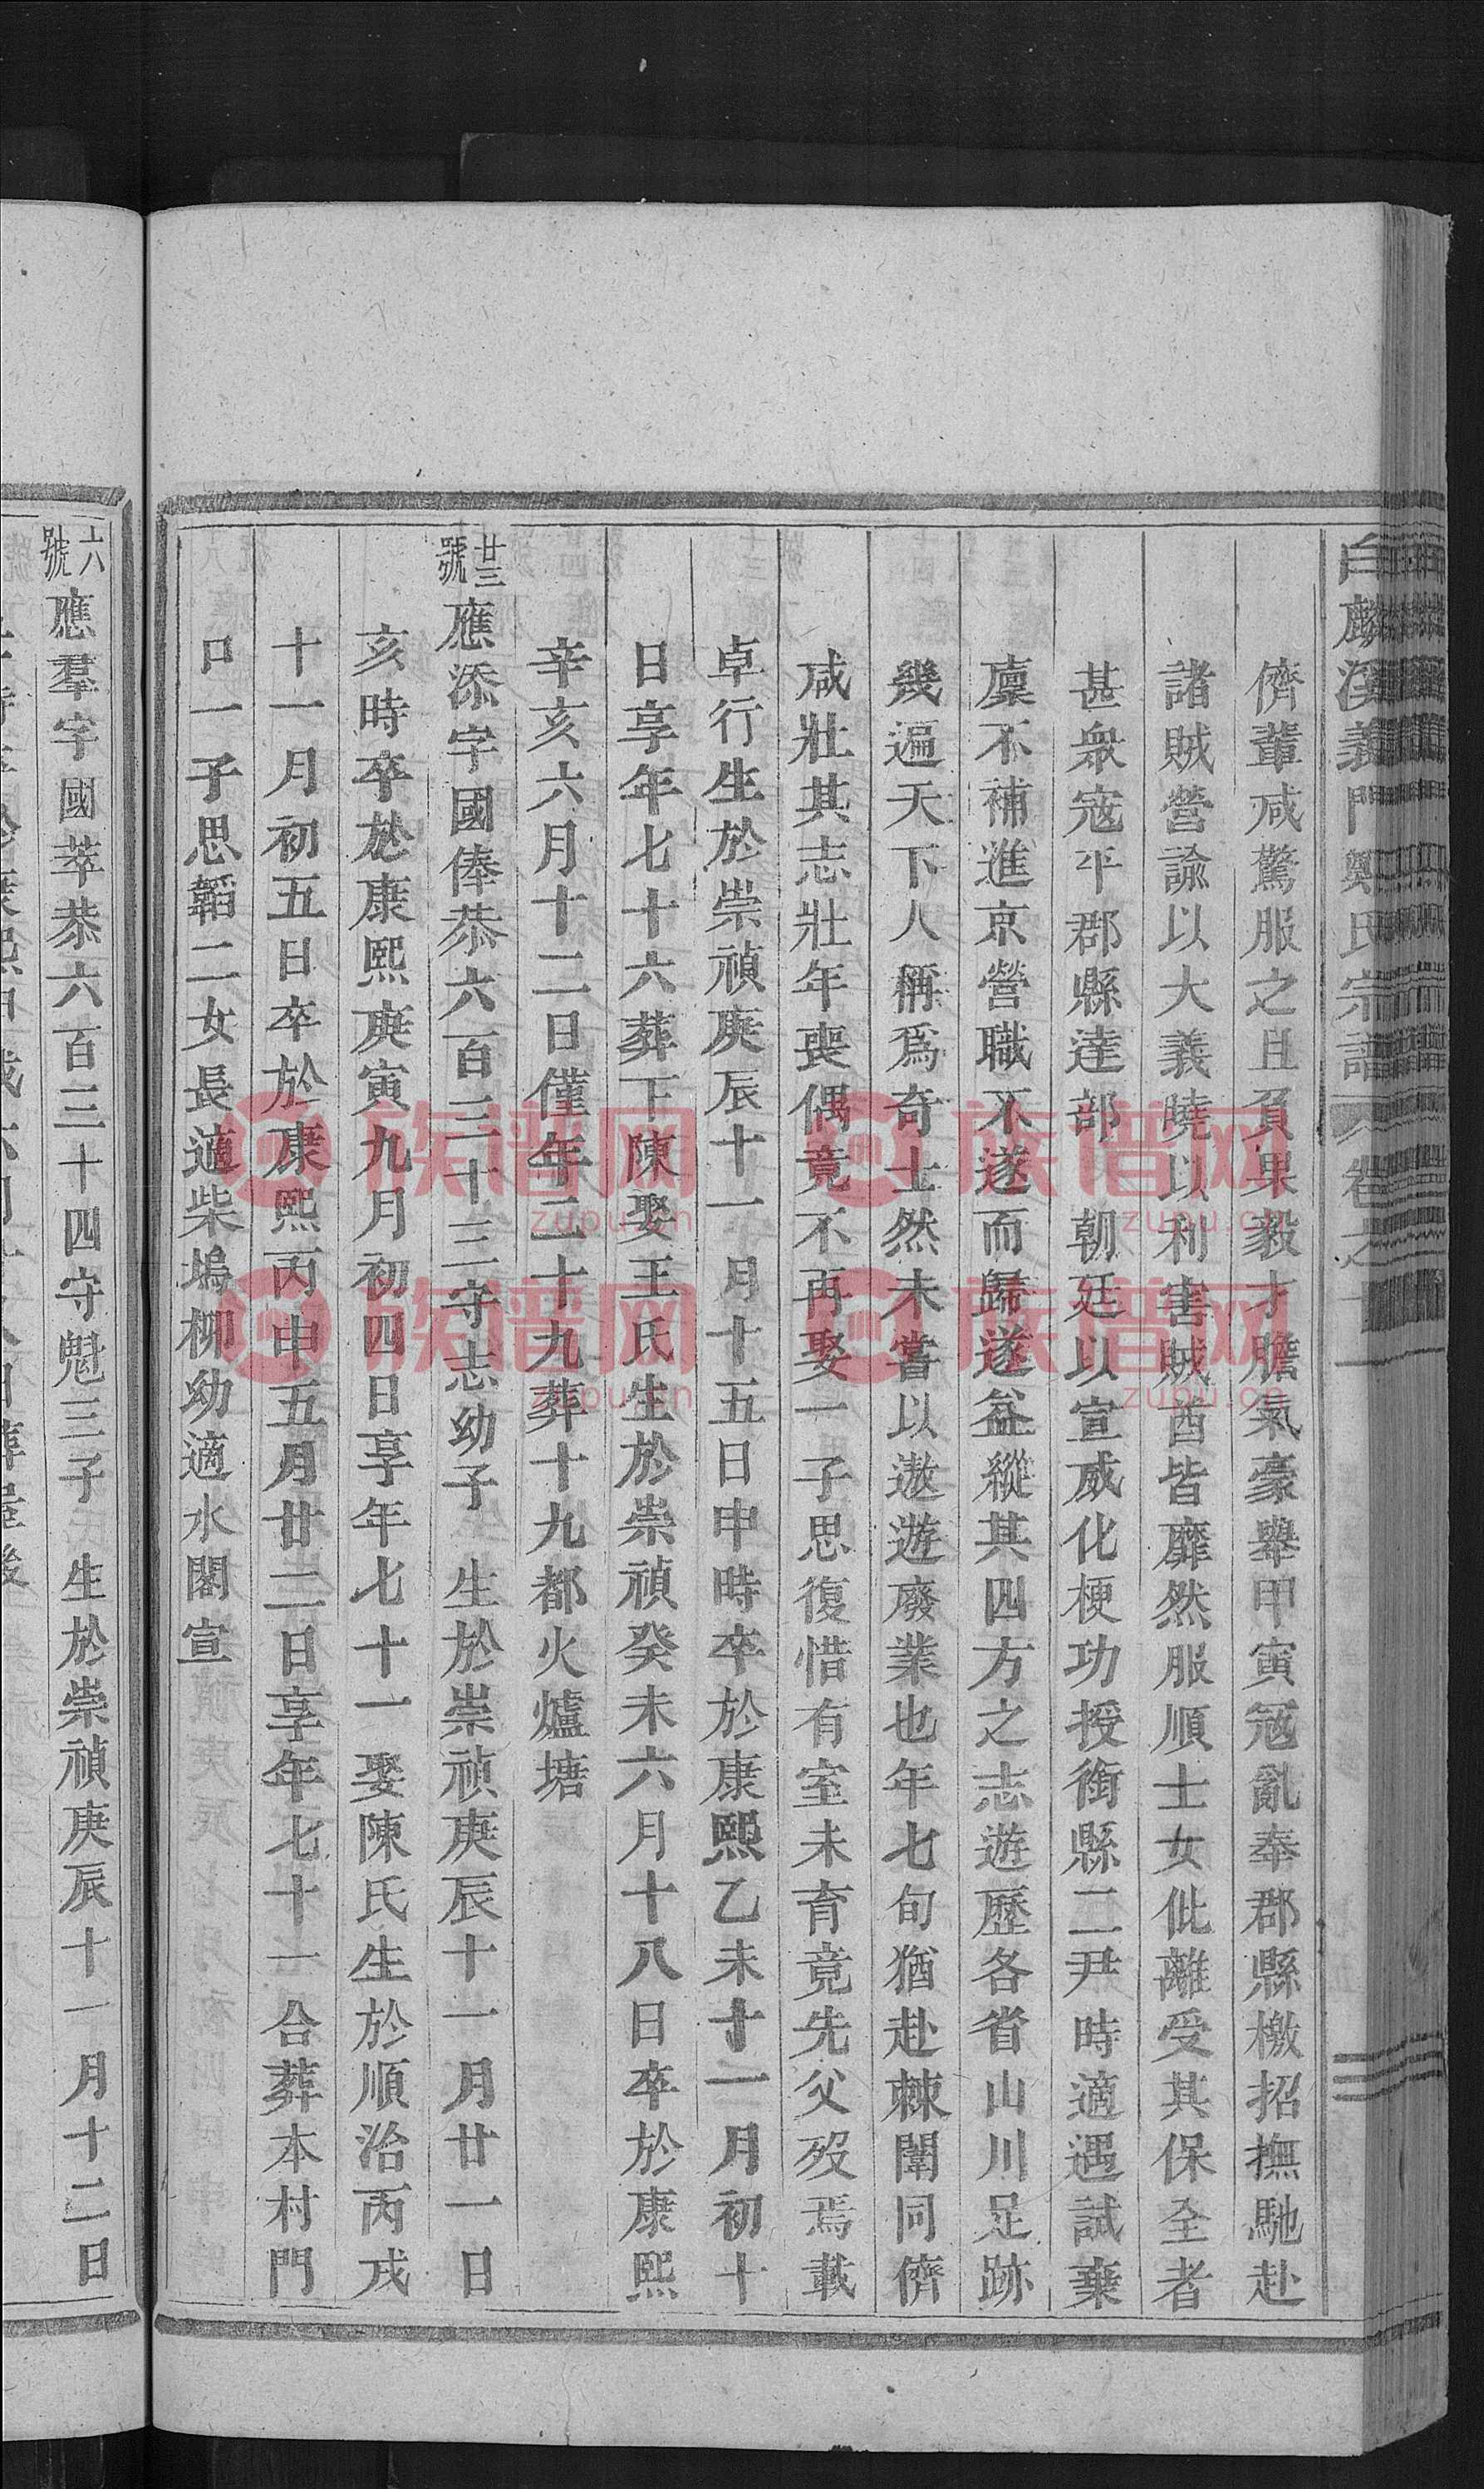 白麟溪義門鄭氏宗譜 卷之十一
儕輩咸驚服之且負果毅才膽氣豪舉甲寅寇亂奉郡縣檄招撫馳赴
諸賊營諭以大義曉以利害賊酋皆靡然服順士女仳離受其保全者
甚衆寇平郡縣達部 朝廷以宣威化梗功授銜縣二尹時適遇試棄
廩不補進京營職不遂而歸遂益縱其四方之志遊歷各省山川足跡
幾遍天下人稱爲奇士然未嘗以遨遊廢業也年七旬猶赴棘闈同儕
咸壯其志壯年喪偶竟不再娶一子思復惜有室未育竟先父歿焉載
卓行生於崇禎庚辰十一月十五日申時卒於康熙乙未十二月初十
日享年七十六葬下陳娶王氏生於崇禎癸未六月十八日卒於康熙
辛亥六月十二日僅年二十九葬十九都火爐塘
廿三號 應添字國俸恭六百三十三守志幼子 生於崇禎庚辰十一月廿一日
亥時卒於康熙庚寅九月初四日享年七十一娶陳氏生於順治丙戌
十一月初五日卒於康熙丙申五月廿二日享年七十一合葬本村門
口一子思韜二女長適柴塢柳幼適水閣宣
六號 應羣字國萃恭六百三十四守魁三子 生於崇禎庚辰十一月十二日
族谱网
zupu.cn
族谱网
zupu.cn
族谱网
zupu.cn
族谱网
zupu.cn